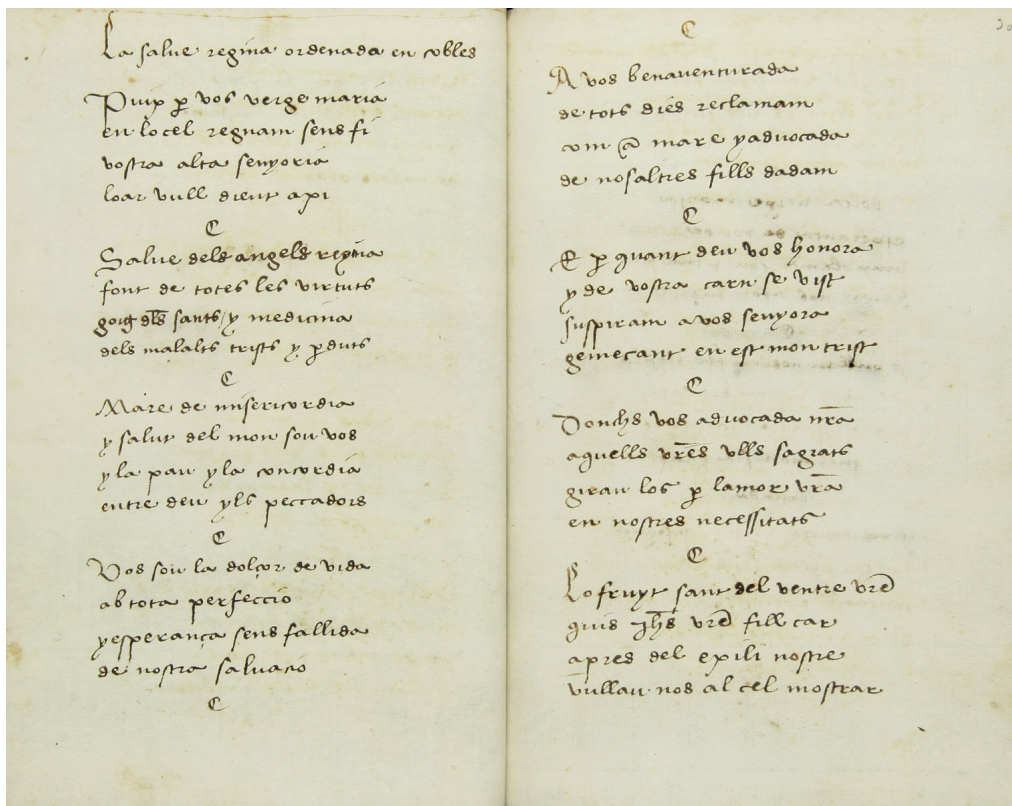 La salue regina ordenada en cobles
Puix p̱ vos verge maria
en lo cel regnam sens fi
vostra alta senyoria
loar vull dient axi
C
Salue dels angels regina
font de totes les virtuts
goig dl̅s sants / y medicina
dels malalts trists y p̱duts
C
Mare de misericordia
y salut del mon sou vos
y la pau y la concordia
entre deu yls peccadors
C
Vos sou la dolçor de vida
ab tota perfeccio
y esperança sens fallida
de nostra saluacio
C
C
A vos benauenturada
de tots dies reclamam
com a mare y aduocada
de nosaltres fills dadam
C
E p̱ quant deu vos honora
y de vostra carn se vist
suspiram a vos senyora
gemecant en est mon trist
C
Donchs vos aduocada nr̅a
aquells vr̅es vlls sagrats
girau los p̱ lamor vr̅a
en nostres necessitats
C
Lo fruyt sant del ventre vr̅e
quis Jh̅s vr̅e fill car
apres del exili nostre
vullau nos al cel mostrar